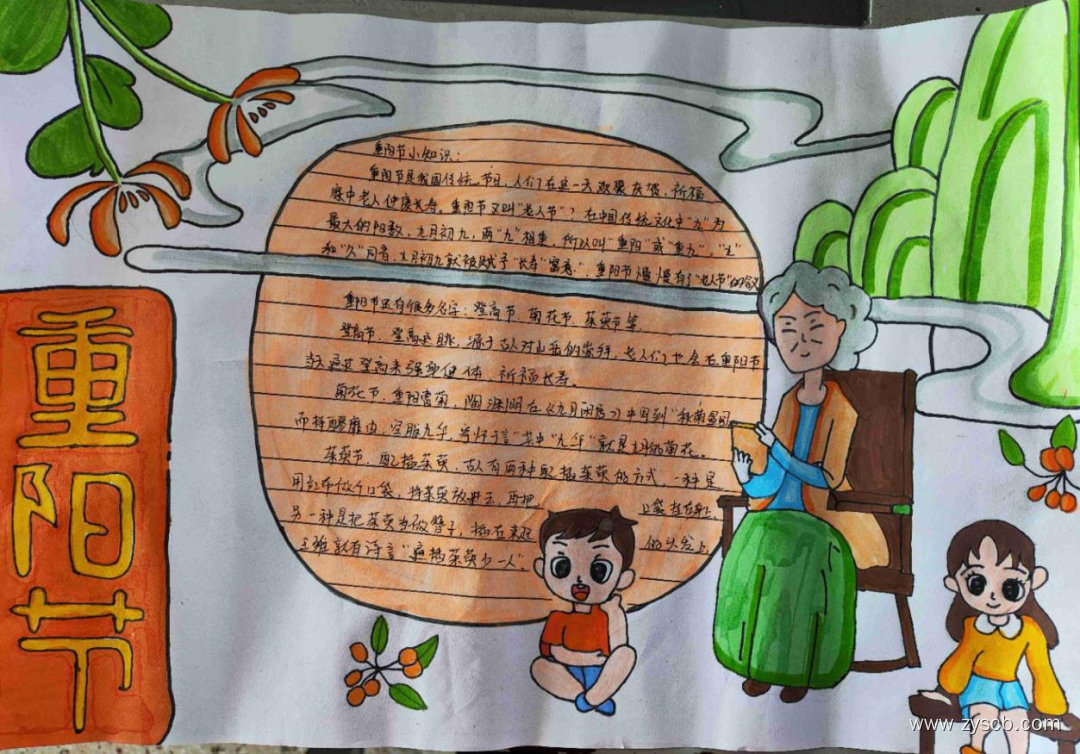 重阳节
重阳节小知识：
重阳节是我国传统节日，人们在这一天欢聚庆贺，祈福
家中老人健康长寿。重阳节又叫"老人节"？在中国传统文化中"九"为
最大的阳数，九月初九，两"九"相重，所以叫"重阳"或"重九"，"九"
和"久"同音，九月初九就被赋予"长寿"寓意，重阳节慢慢有了"老人节"的含义
重阳节还有很多名字：登高节、菊花节、茱萸节等
登高节，登高远眺，源于古人对山岳的崇拜，人们也会在重阳节
通过登高来强身健体，祈福长寿。
菊花节，重阳赏菊，陶渊明在《九月闲居》中写到"秋菊盈园
而持醪靡由，空服九华，寄怀于言"其中"九华"就是九月的菊花。
茱萸节，配插茱萸，古人有两种配插茱萸的方式，一种是
用红布做个口袋，将茱萸放进去，再把 口袋挂在身上
另一种是把茱萸当做簪子，插在 的头发上
王维就有诗言"遍插茱萸少一人"。
www.zyscb.com